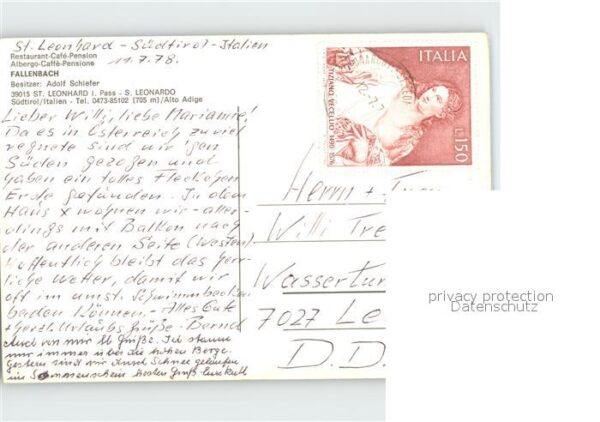 St. Leonhard - Südtirol - Italien
11.7.78.
Restaurant-Café-Pension
Albergo-Caffè-Pensione
FALLENBACH
Besitzer: Adolf Schiefer
39015 ST. LEONHARD i. Pass - S. LEONARDO
Südtirol/Italien - Tel. 0473-85102 (705 m)/Alto Adige
Lieber Willi, liebe Marianne!
Da es in Österreich zuviel
regnete sind wir 'gen
Süden gezogen und
haben ein tolles Fleckchen
Erde gefunden. In dem
Haus x wohnen wir - aller-
dings mit Balkon nach
der anderen Seite (Westen)
Hoffentlich bleibt das herr-
liche Wetter, damit wir
oft im Schwimmbecken
baden können. - Alles Gute
+ herzl. Urlaubs Grüße - Bernd
Auch von mir lb Grüße. Ich staune
nur immer über die hohen Berge.
Gestern sind wir durch Schnee gelaufen
im Sonnenschein
ITALIA
TIZIANO VECELLIO 1490 1576
L.150
Herrn +
Willi Tre
Wassertur
7027 Le
D.D.
privacy protection
Datenschutz